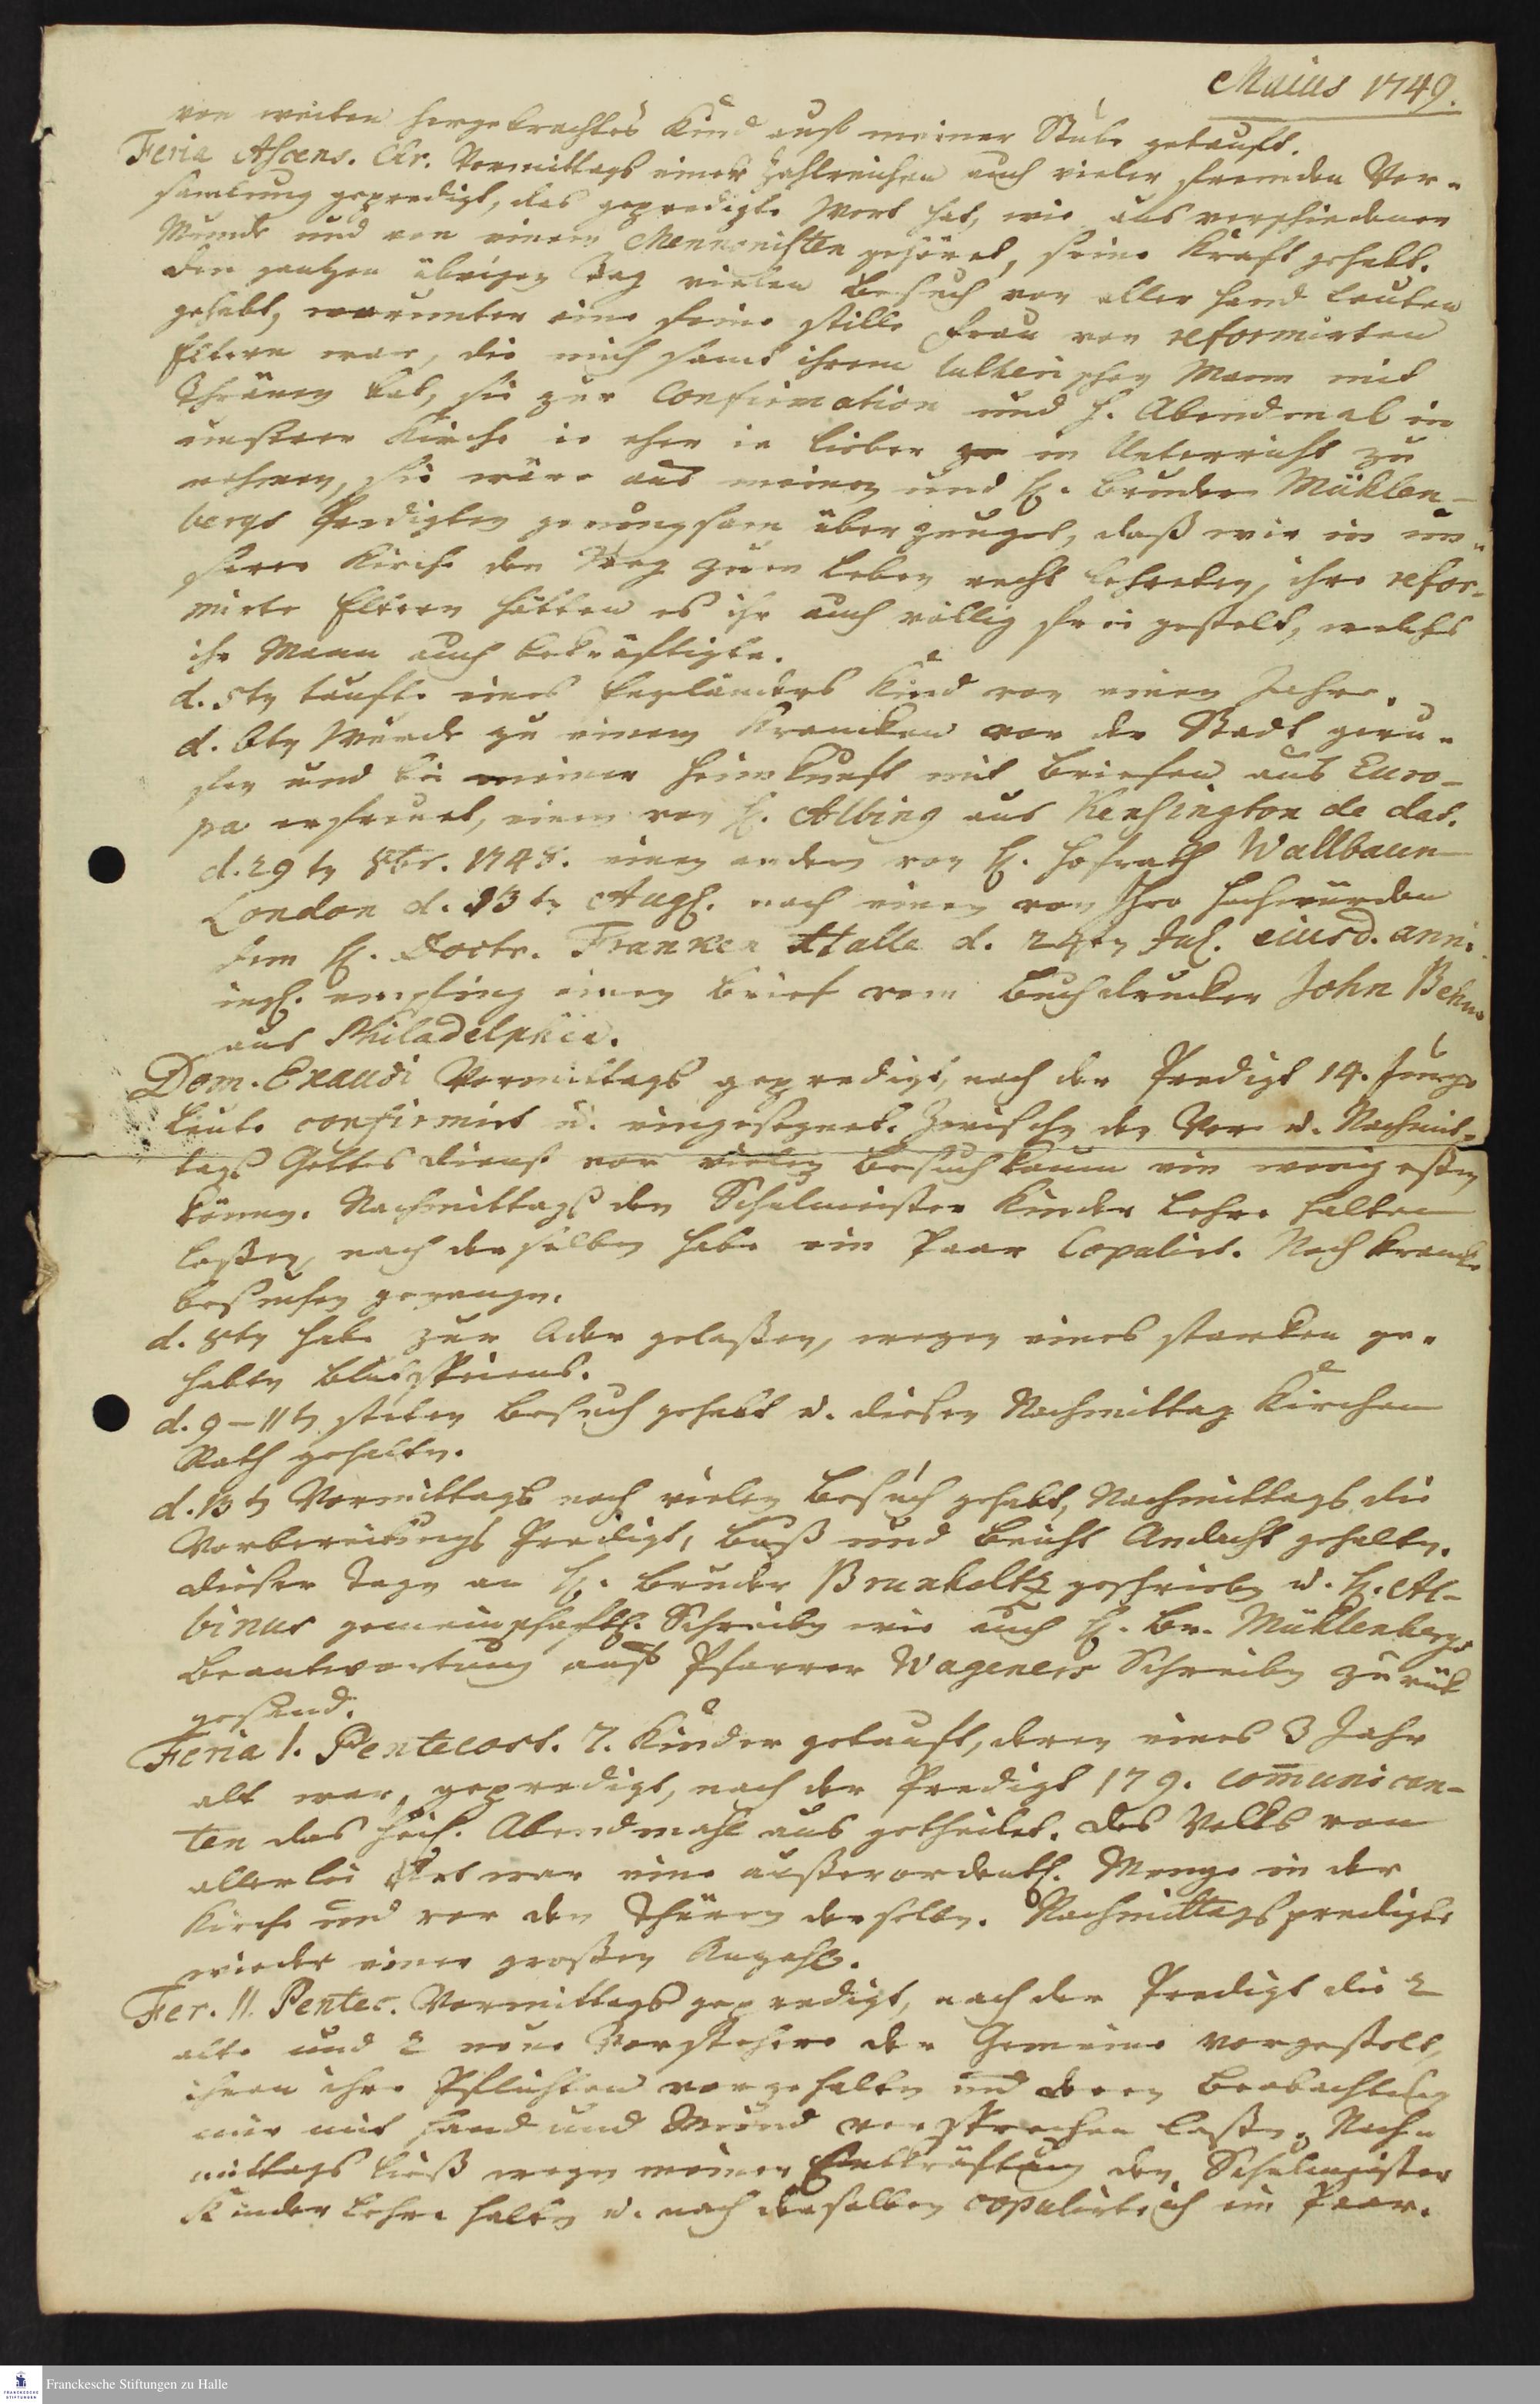 Maius 1749.
von weiten hergebrachtes Kind auf meiner Stube getauft.
Feria Ascens. Chr. Vormittags einer zahlreichen auch vieler fremden Ver-
samlung gepredigt, das gepredigte Wort hat, wie aus verschiedener
Munde und von einem Mennonisten gehöret, seine Kraft gehabt.
Den gantzen übrigen Tag vielen Besuch von aller hand Leuten
gehabt, worunter eine feine stille Frau von reformirten
Eltern war, die mich samt ihrem lutherischen Mann mit
Thränen bat, sie zur Confirmation und h. Abendmal in
unserer Kirche ie eher ie lieber in Unterricht zu
nehmen, sie wäre aus meinen und H. Bruder Mühlen-
bergs Predigten genungsam überzeuget, daß wir in un-
serer Kirche den Weg zum Leben recht lehreten, ihre refor-
mirte Eltern hätten es ihr auch völlig frei gestelt, welches
ihr Mann auch bekräftigte.
d. 5ten taufte eines Engländers Kind von einem Jahre.
d. 6ten Wurde zu einem Krancken vor der Stadt geru-
fen und bei meiner Heimkunft mit Briefen aus Euro-
pa erfreuet, einem von H. Albing aus Kensington de dat.
d. 29ten 8br. 1748. einen andern von H. Hofrath Wallbaum
London d. 13ten Aug. noch einen von Ihro Hochwürden
dem H. Doctr. Franken Halle d. 24ten Jul. eiusd. anni.
ingl. empfing einen Brief vom Buchdrucker John Behm
aus Philadelphia.
Dom. Exaudi Vormittags gepredigt, nach der Predigt 14. junge
Leute confirmirt u. eingesegnet. Zwischen den Vor u. Nachmit-
tags Gottesdienst vor vielen Besuch kaum ein wenig eßen
können. Nachmittags den Schulmeister Kinder Lehre halten
laßen, nach derselben habe ein Paar Copulirt. Noch Krancke
besuchen gegangen.
d. 8ten habe zur Ader gelaßen, wegen eines starcken ge-
habten Blutspeiens.
d. 9-11ten steten Besuch gehabt u. diesen Nachmittag Kirchen
Rath gehalten.
d. 13ten Vormittags noch vielen Besuch gehabt, Nachmittags die
Vorbereitungs Predigt, Buß und Beicht Andacht gehalten.
dieser Tage an H. Bruder Brunholtz geschrieben u. H. Al-
binus gemeinschaftl. Schreiben wie auch H. Br. Mühlenbergs
Beantwortung auf Pfarrer Wageners Schreiben zurük
gesand.
Feria I. Pentecost. 7. Kinder getauft, deren eines 3 Jahr
alt war, gepredigt, nach der Predigt 179. com̄unican-
ten das heil. Abendmahl aus getheilet. Des Volks von
allerlei Art war eine außerordentl. Menge in der
Kirche und vor den Thüren derselben. Nachmittags predigte
wieder einer großen Anzahl.
Fer. II. Pentec. Vormittags gepredigt, nach der Predigt die 2
alte und 2 neue Vorstehere der Gemeine vorgestelt,
ihnen ihre Pflichten vorgehalten und deren Beobachtung
mir mit Hand und Mund versprechen laßen. Nach-
mittags ließ wegen meiner Entkräftung den Schulmeister
Kinder Lehre halten u. nach derselben copulirte ich ein Paar.
Franckesche Stiftungen zu Halle